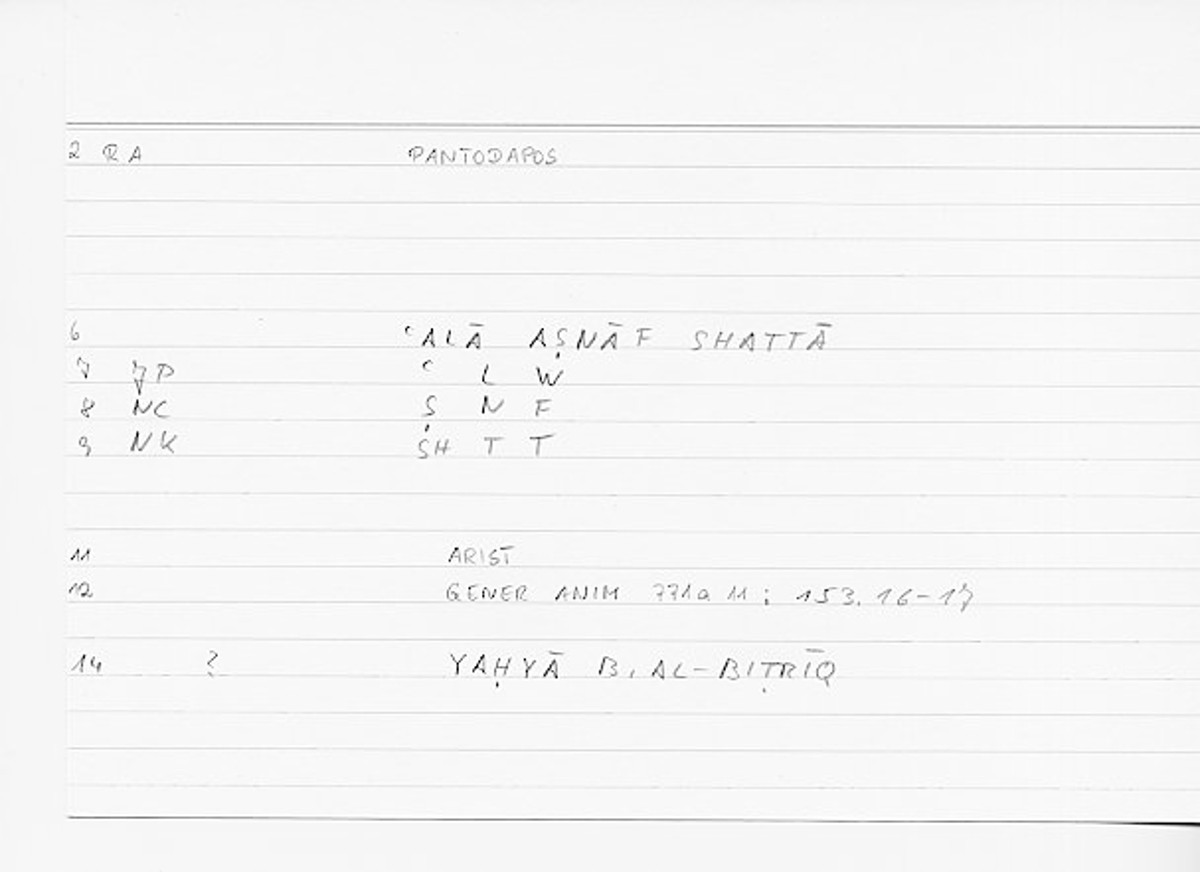 2 RA PANTODAPOS
6 ʿALĀ AṢNĀF SHATTĀ
7 JP ʿ L W
8 NC Ṣ N F
9 NK SH T T
11 ARIST
12 GENER ANIM 771a 11 ; 153. 16-17
14 ? YAḤYĀ B. AL-BIṬRĪQ